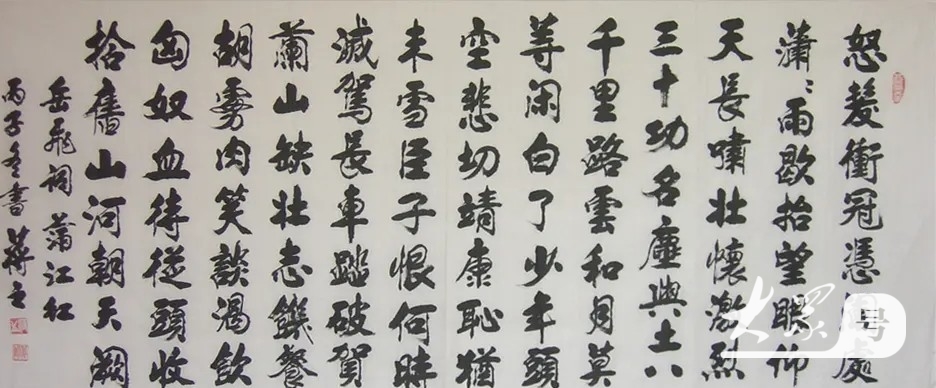 怒髮衝冠憑處
瀟〻雨歇抬望眼仰
天長嘯壯懷激烈
三十功名塵與土八
千里路雲和月莫
等闲白了少年頭
空悲切靖康恥猶
未雪臣子恨何時
滅駕長車踏破賀
蘭山缺壯志饑餐
胡虜肉笑談渴飲
匈奴血待從頭收
拾舊山河朝天闕
岳飛詞 滿江红
丙子冬書 蔣
大眾号